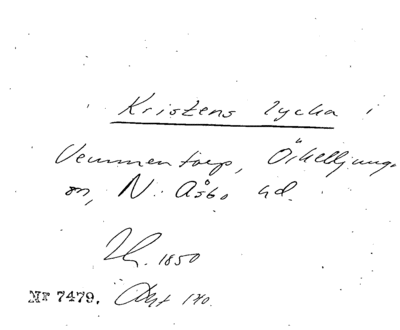 Kristens lycka i
Vemmentorp, Örkelljunga
sn, N. Åsbo hd.
1850
Nr 7479. Avst 170.